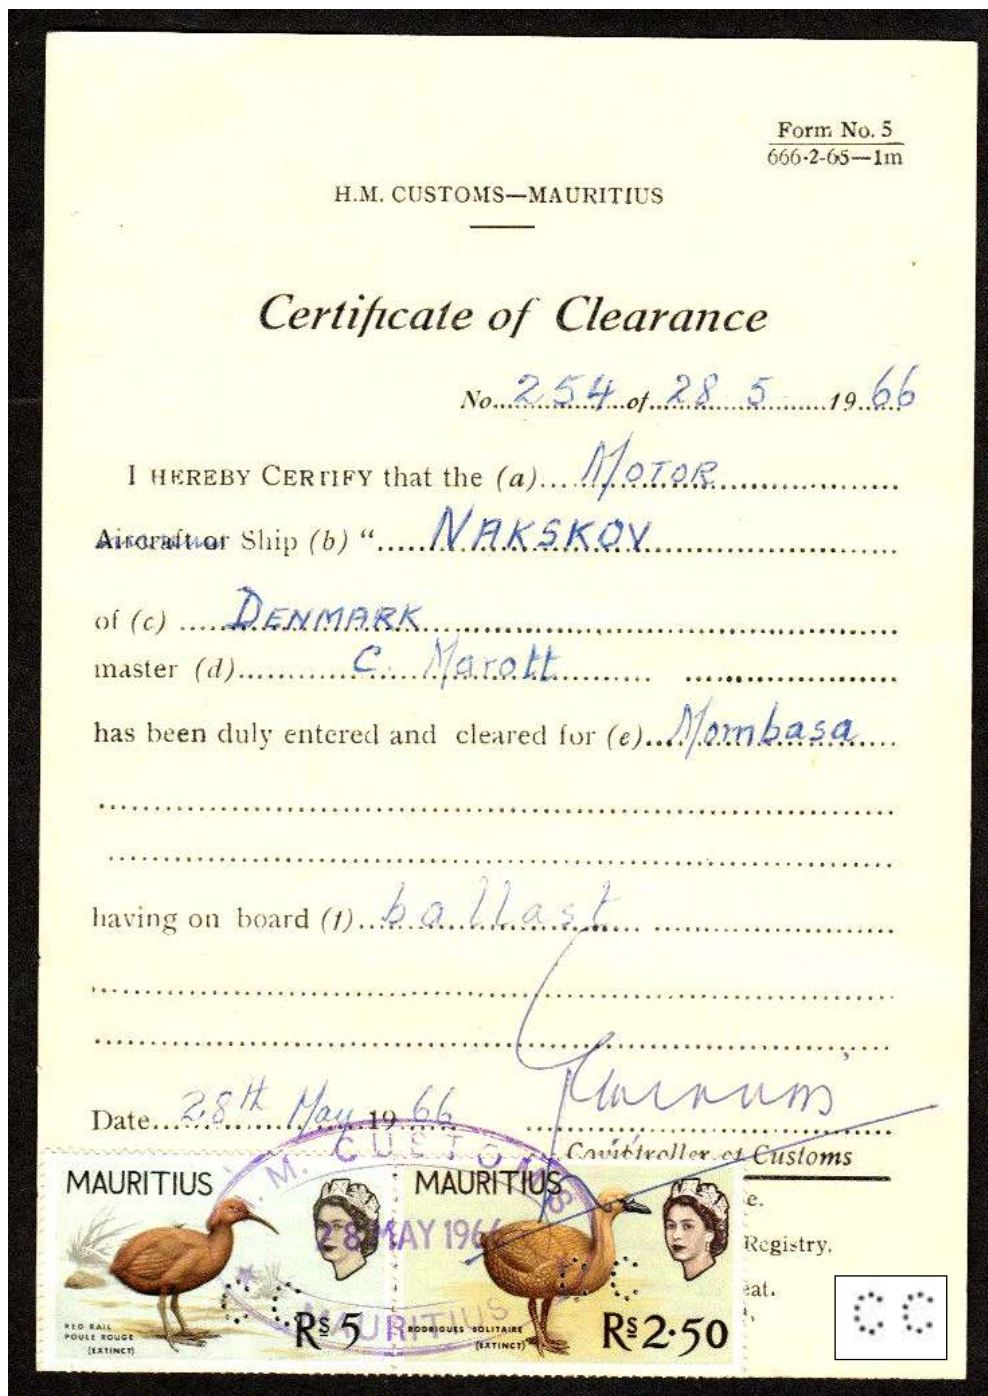 Form No. 5
666-2-65—1m
H.M. CUSTOMS—MAURITIUS
Certificate of Clearance
No. 254 of 28 5 19 66
I HEREBY CERTIFY that the (a) MOTOR
Aircraft or Ship (b) “ NAKSKOV
of (c) DENMARK
master (d) C. Marott
has been duly entered and cleared for (e) Mombasa
having on board (f) ballast
Date 28th May 19 66
Comptroller of Customs
e.
Registry.
eat.
H.M. CUSTOMS
28 MAY 1966
MAURITIUS
MAURITIUS
RED RAIL
POULE ROUGE
(EXTINCT)
Rs 5
MAURITIUS
RODRIGUES SOLITAIRE
(EXTINCT)
Rs 2·50
C C